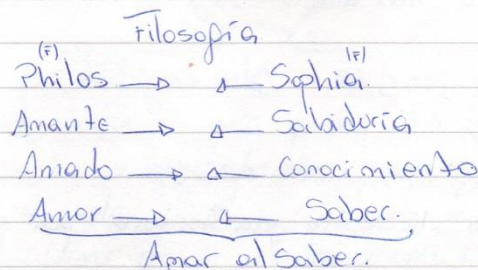 Filosofía
(F) (F)
Philos → ← Sophia.
Amante → ← Sabiduría
Amado → ← Conocimiento
Amor → ← Saber.
Amar al Saber.